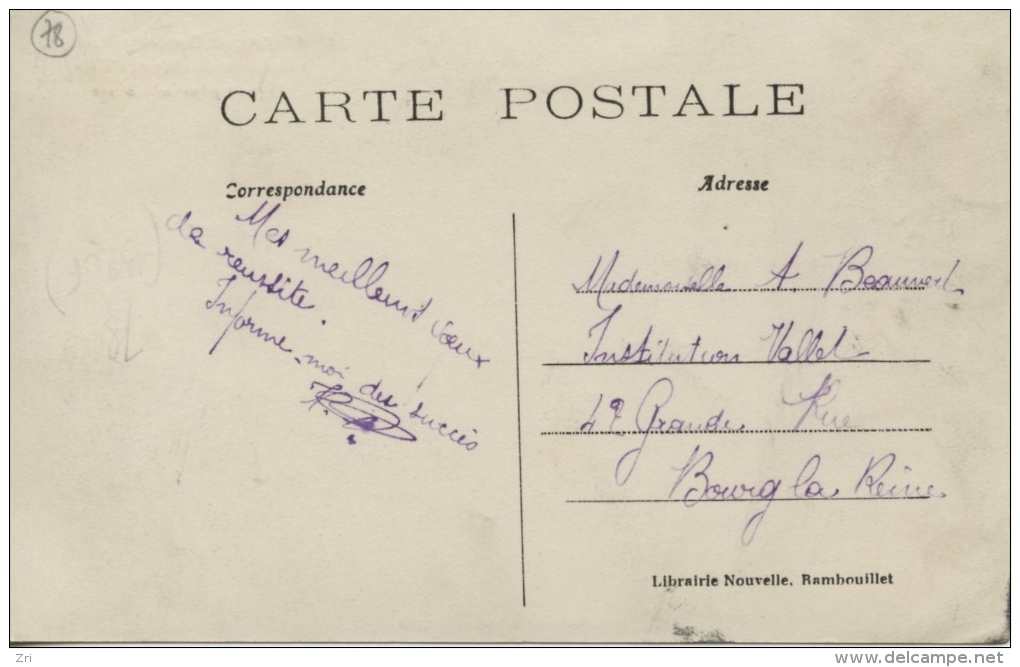 78
CARTE POSTALE
Correspondance
Mes meilleurs vœux
de reussite.
Informe-moi du succès
Adresse
Mademoiselle A. Beauvert
Institution Vallet
42 Grande Rue
Bourg la Reine
Librairie Nouvelle, Rambouillet
Zri
www.delcampe.net